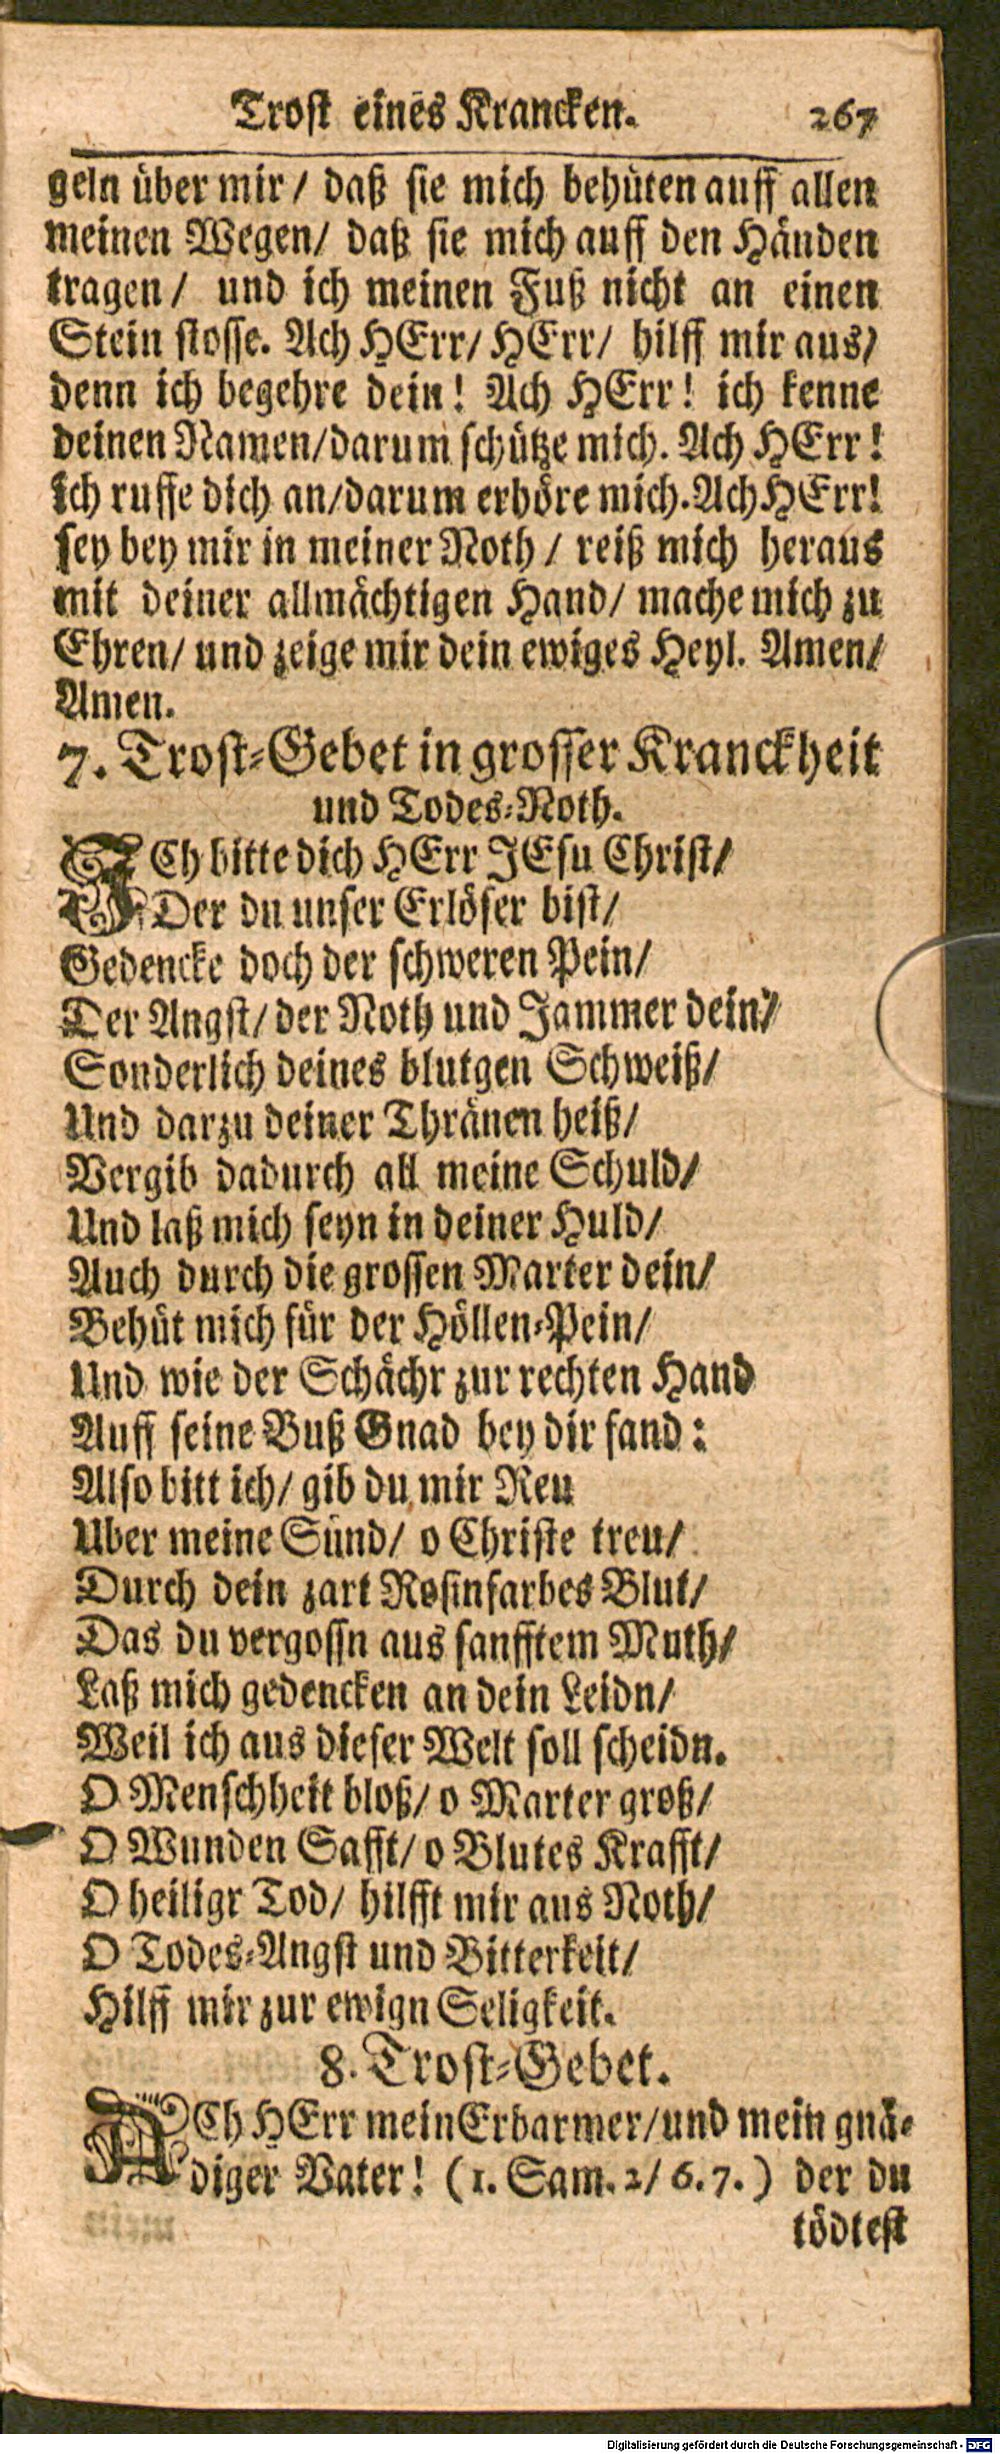 Trost eines Krancken. 267
geln über mir / daß sie mich behüten auff allen
meinen Wegen/ daß sie mich auff den Händen
tragen / und ich meinen Fuß nicht an einen
Stein stosse. Ach HErr/ HErr/ hilff mir aus/
denn ich begehre dein! Ach HErr! ich kenne
deinen Namen/darum schütze mich. Ach HErr!
ich ruffe dich an/darum erhöre mich. Ach HErr!
sey bey mir in meiner Noth / reiß mich heraus
mit deiner allmächtigen Hand/ mache mich zu
Ehren/ und zeige mir dein ewiges Heyl. Amen/
Amen.
7. Trost-Gebet in grosser Kranckheit
und Todes-Noth.
ICh bitte dich HErr JEsu Christ/
Der du unser Erlöser bist/
Gedencke doch der schweren Pein/
Der Angst/ der Noth und Jammer dein/
Sonderlich deines blutgen Schweiß/
Und darzu deiner Thränen heiß/
Vergib dadurch all meine Schuld/
Und laß mich seyn in deiner Huld/
Auch durch die grossen Marter dein/
Behüt mich für der Höllen-Pein/
Und wie der Schächr zur rechten Hand
Auff seine Buß Gnad bey dir fand:
Also bitt ich/ gib du mir Reu
Uber meine Sünd/ o Christe treu/
Durch dein zart Rosinfarbes Blut/
Das du vergossn aus sanfftem Muth/
Laß mich gedencken an dein Leidn/
Weil ich aus dieser Welt soll scheidn.
O Menschheit bloß/ o Marter groß/
O Wunden Safft/ o Blutes Krafft/
O heiligr Tod/ hilfft mir aus Noth/
O Todes-Angst und Bitterkeit/
Hilff mir zur ewign Seligkeit.
8. Trost-Gebet.
ACh HErr mein Erbarmer/und mein gnä-
diger Vater! (1. Sam. 2/ 6. 7.) der du
tödtest
Digitalisierung gefördert durch die Deutsche Forschungsgemeinschaft - DFG